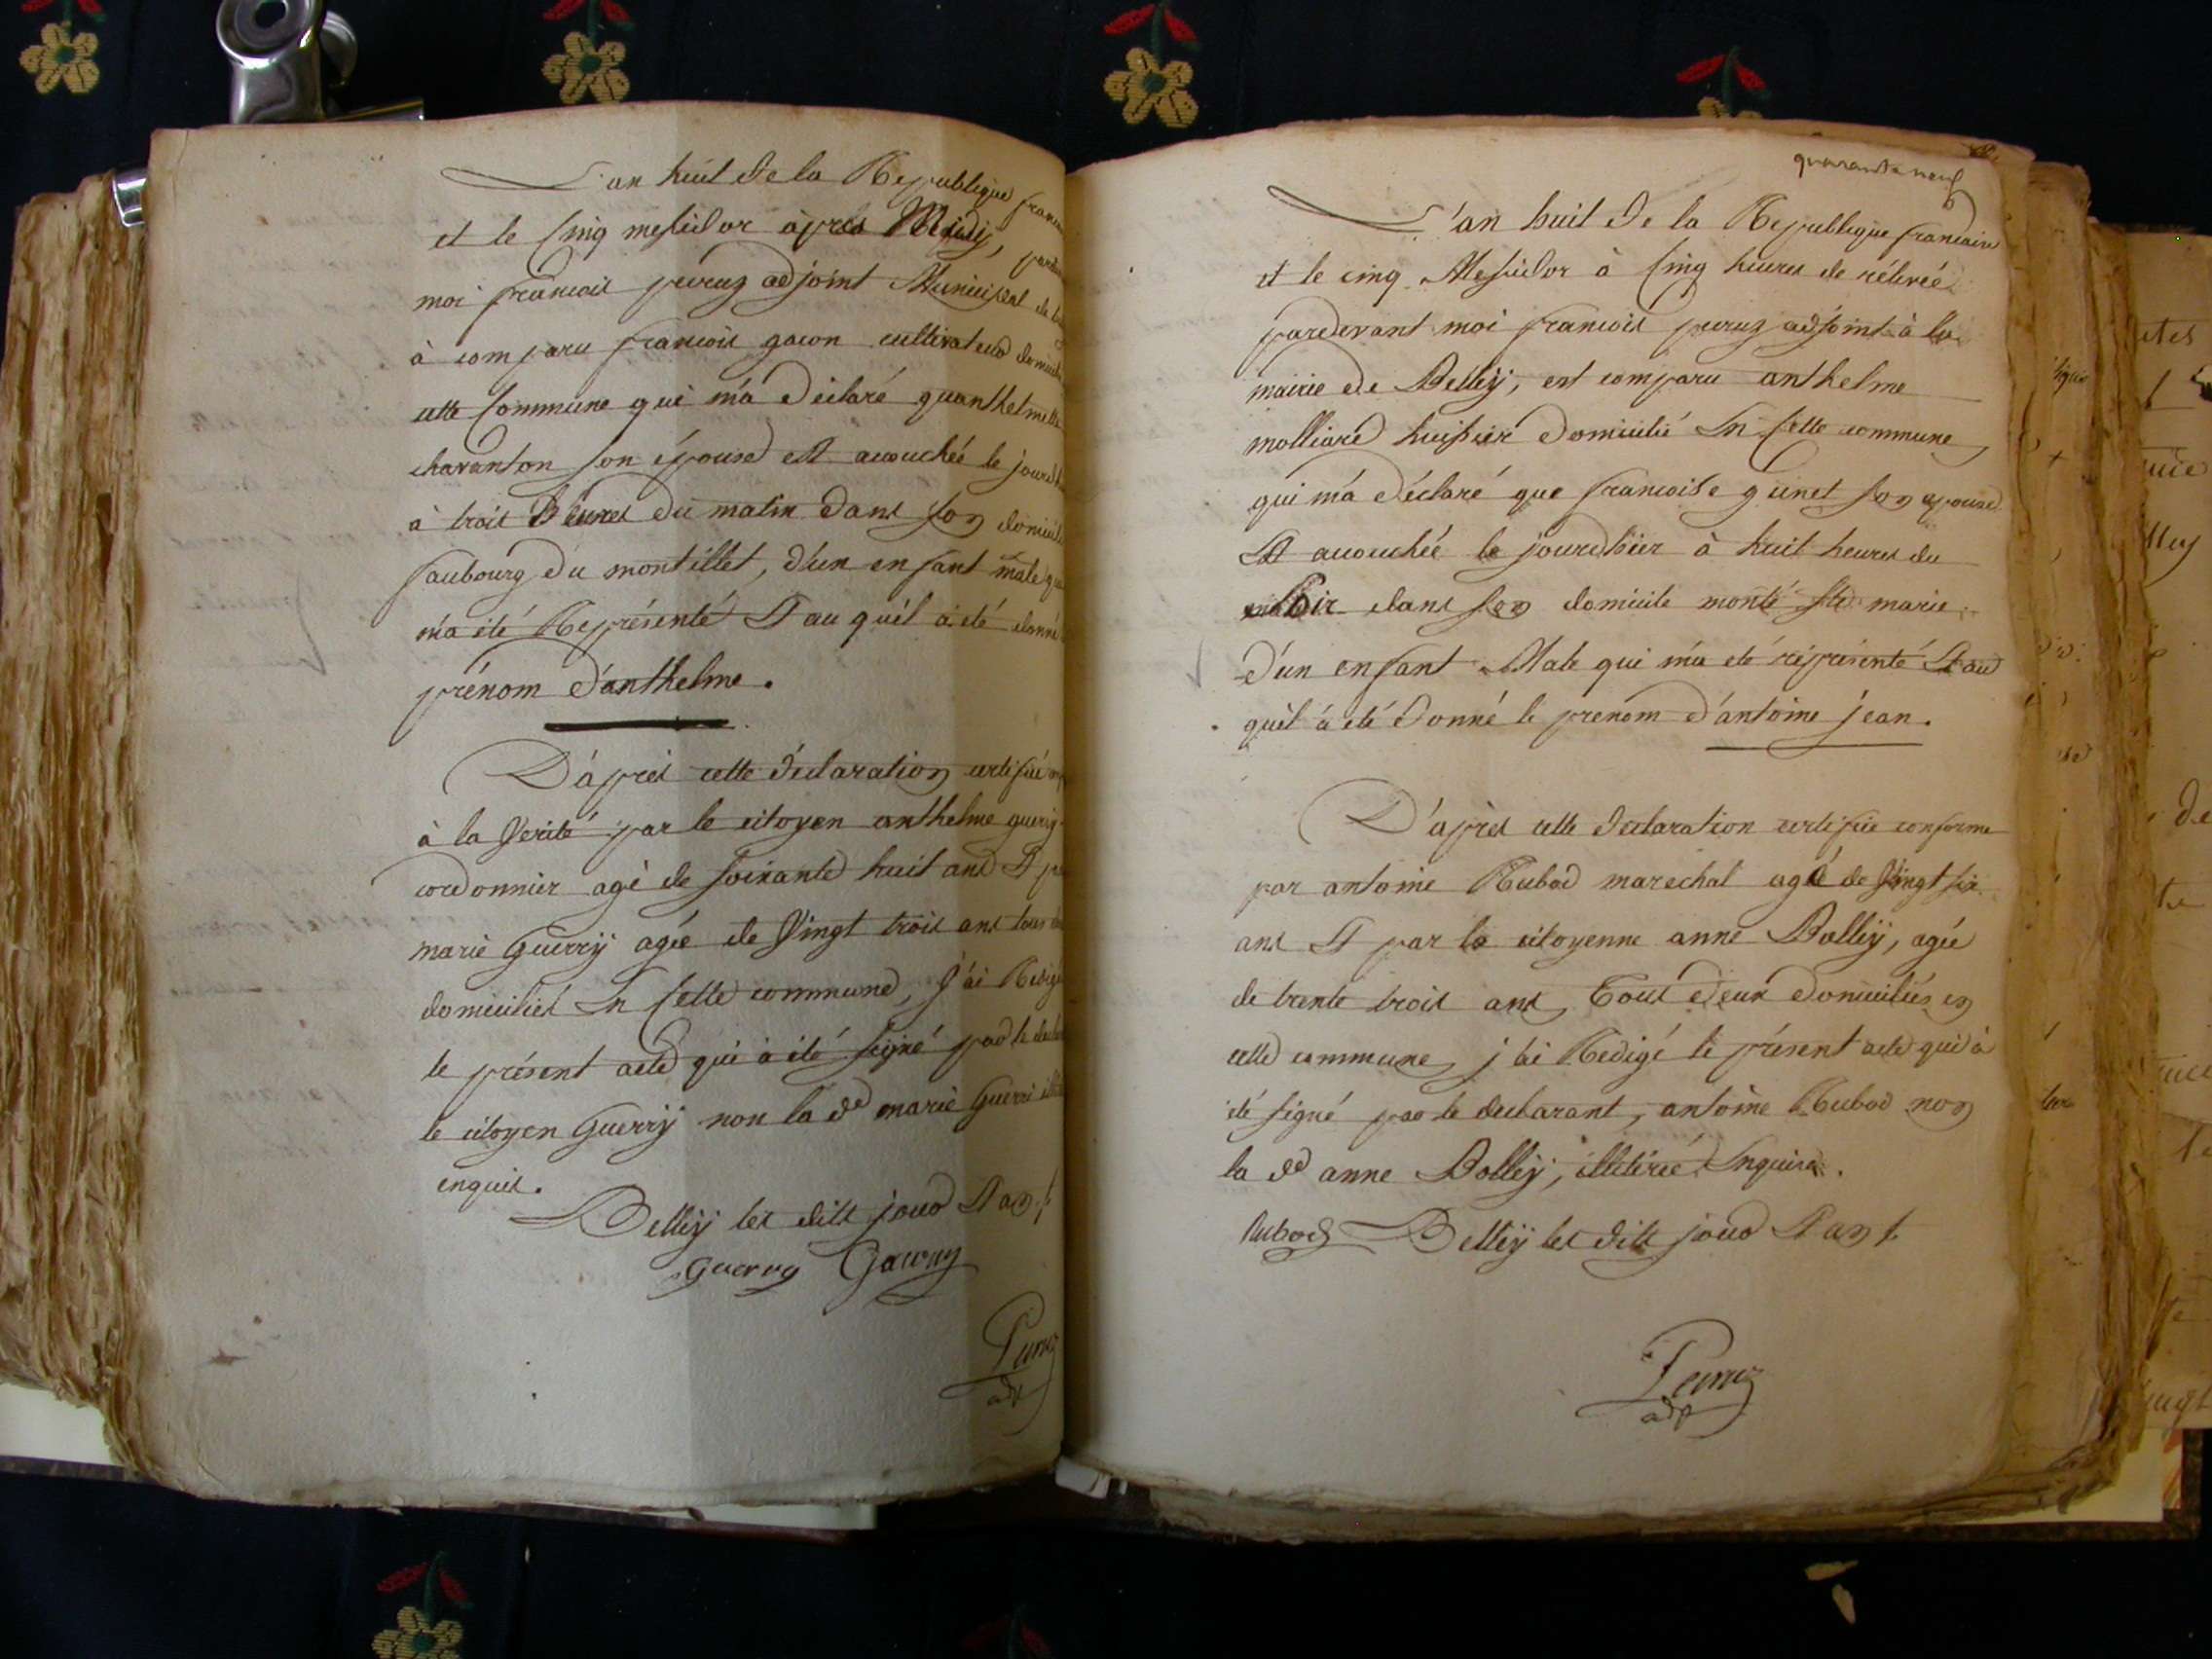 L'an huit de la Republique francai
et le cinq messidor après Midy, pard
moi francois peruz adjoint Municipal de
à comparu francois gacon cultivateur domicilié
cette Commune qui m'a déclaré qu'anthelmette
charanton son épouse est acouchée le jourd
à trois heures du matin dans son domicile
faubourg du montillet, d'un enfant male q
m'a été Représenté et au quel a été donné
prénom d'anthelme.
D'après cette déclaration certifiée
à la Verité par le citoyen anthelme guerry
cordonnier agé de soixante huit ans et p
marie Guerry agée de Vingt trois ans tous
domiciliés en cette commune, j'ai Redigé
le présent acte qui à été signé par le decla
le citoyen Guerry non la dte marie Guerri
enquis.
Belley les dits jour et an.
Guerry Gacon
Peruz
adjt
quarante neuf
L'an huit de la Republique francaise
et le cinq Messidor à cinq heures de relevée
pardevant moi francois peruz adjoint à la
mairie de Belley, est comparu anthelme
molliard huissier domicilié en cette commune
qui m'a déclaré que francoise genet son epouse
est acouchée le jourdhier à huit heures du
soir dans son domicile monté Ste marie
d'un enfant Male qui m'a eté réprésenté et au
quel à eté donné le prenom d'antoine jean.
D'après cette declaration certifiée conforme
par antoine Rubod marechal agé de Vingt six
ans et par la citoyenne anne Bolley, agée
de trente trois ans, tous deux domiciliés en
cette commune j'ai Redigé le présent acte qui à
été signé par le declarant, antoine Rubod non
la dte anne Bolley, illitérée enquise.
Rubod Belley les dits jour et an
Peruz
adjt